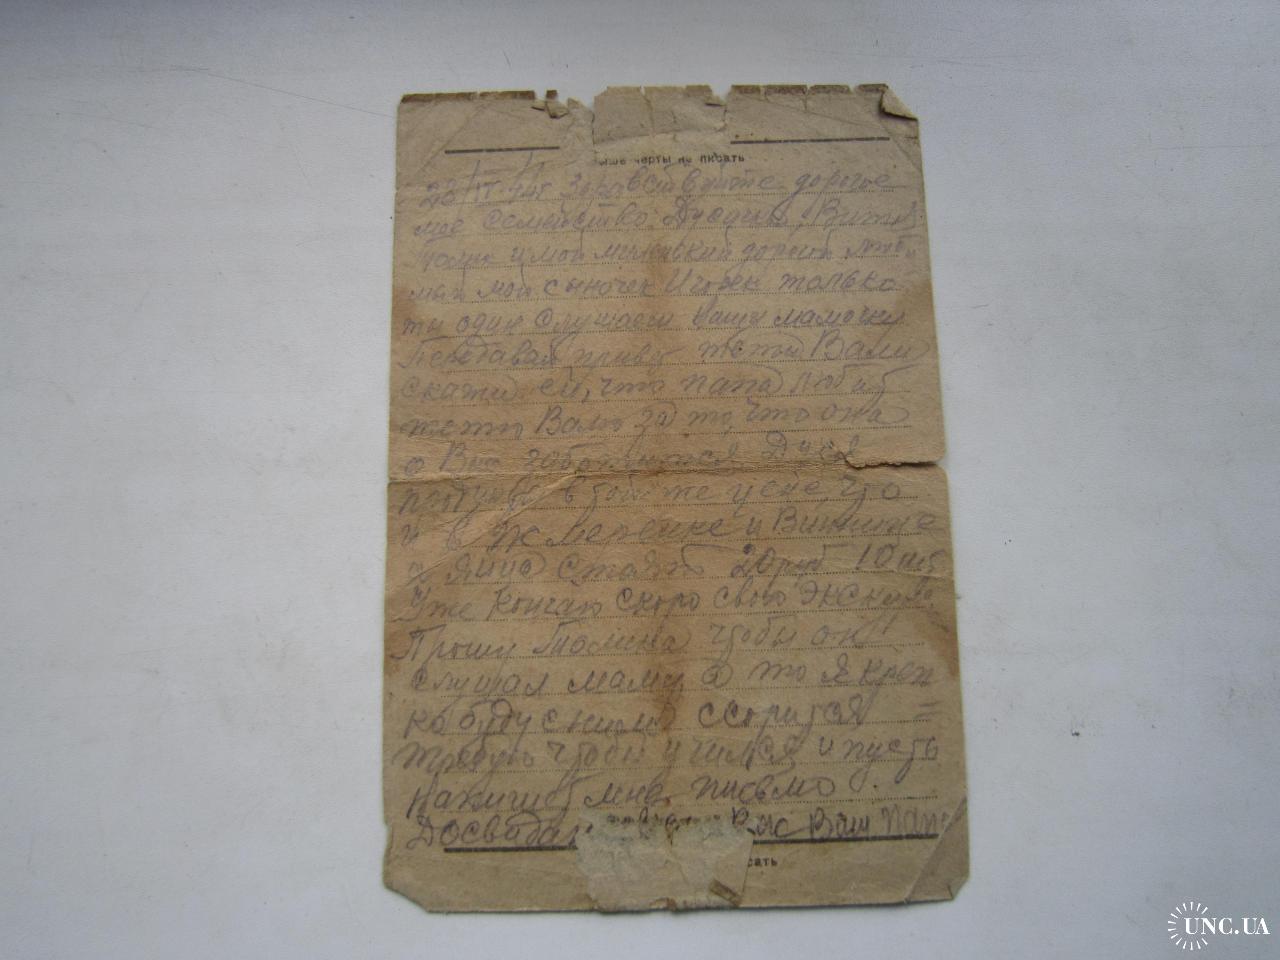 выше черты не писать
28/IV-44г Здравствуйте дорогое
мое семейство Дусачка, Витя
Толик и мой миленький дорогой люби
мый мой сыночек Игорек только
ты один слушаеш вашу мамочку
Передавай привет тети Вали
скажи ей, что папа любит
тетю Валю за то, что она
о Вас заботится Дуся
в той же цене, что
и в Жмеренке и Винице
яйца стоят 20 руб 10 шт
Уже кончаю скоро свою
Прошу Толика чтобы он
слушал маму а то я креп
ко буду с ним ссорится =
требую чтобы учился и пусть
напишет мне письмо.
Досвидан Вас Ваш папа
сать
UNC.UA